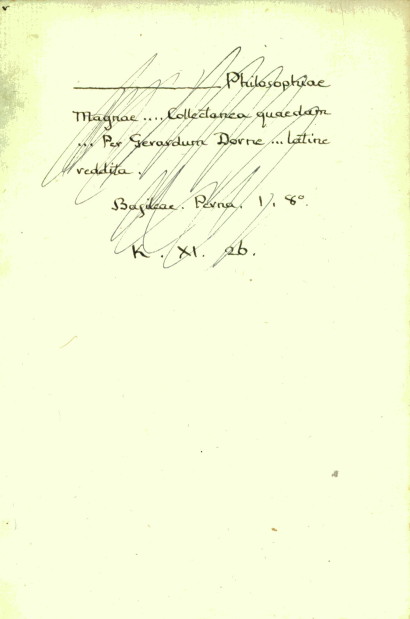 Philosophiae
Magnae .... Collectanea quaedam
... Per Gerardum Dorne ... latine
reddita.
Basileae. Perna. 8°.
K. XI. 26.